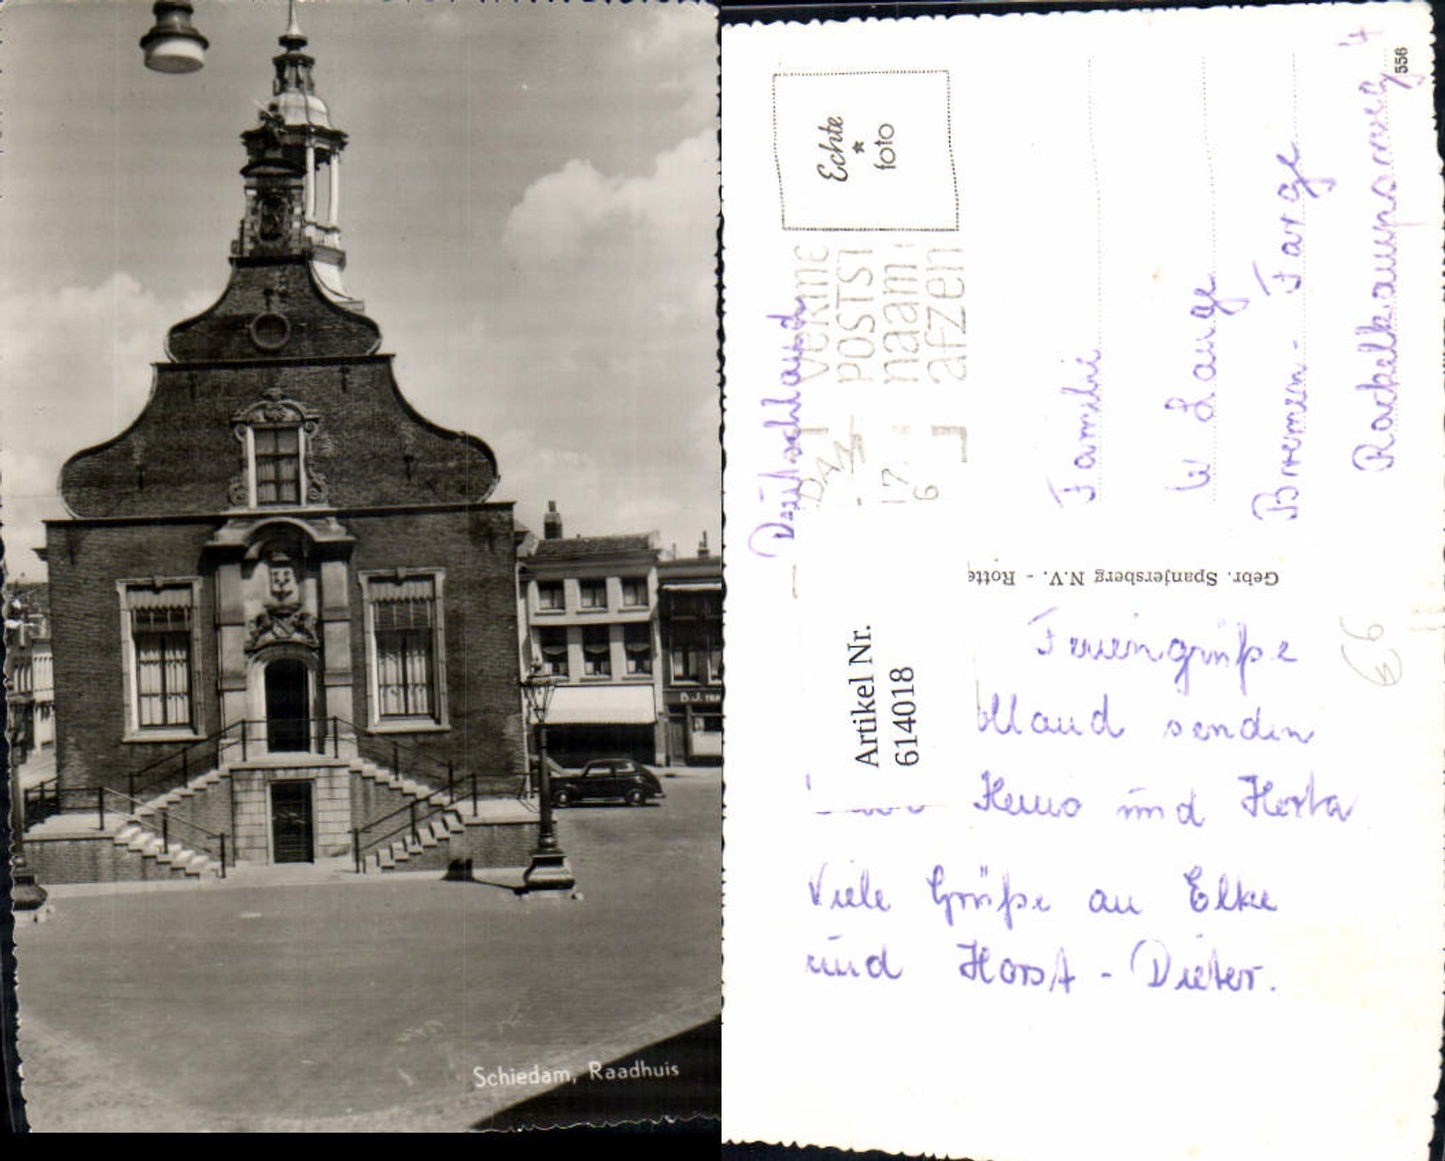 Schiedam, Raadhuis
B.J.
Echte
foto
POSTST
naam
afzen
17.
6
Deutschland
Familie
W Lange
Bremen-Farge
4
556
Gebr. Spanjersberg N.V. - Rotte
Artikel Nr.
614018
66
Feriengrüße
Holland senden
Heino und Herta
Viele Grüße an Elke
und Horst-Dieter.